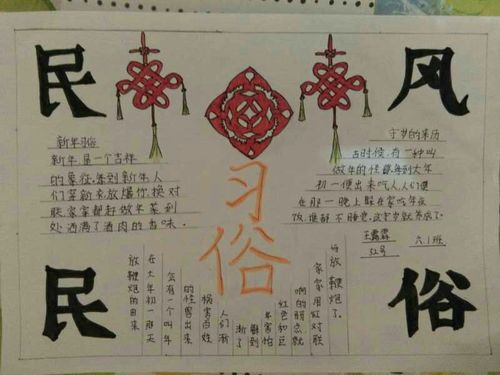 民
风
民
俗
习
俗
新年习俗
新年是一个吉祥
的象征,每到新年人
们穿新衣放爆你,换对
联,家家都赶做年菜,到
处洒满了酒肉的香味。
守岁的来历
古时候,有一种叫
做年的怪兽,每到大年
初一便出来吃人,人们便
在那一晚上躲在家吃年夜
饭,
王霞霖
六.1班
放鞭炮的由来
在大年初一那天
会有一个叫年
的怪兽出来
祸害百姓
人们渐
渐了
年害怕
红色和巨
响的弱点就
家家用红对联
与放鞭炮了。